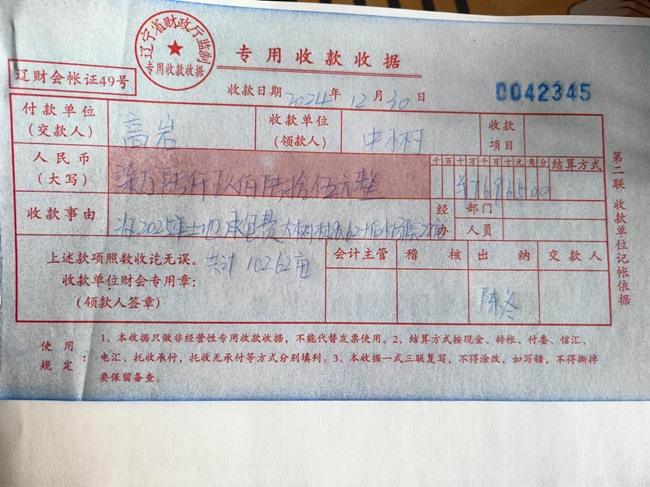 辽宁省财政厅监制
专用收款收据
专用收款收据
辽财会帐证49号
收款日期 2024年 12月 30日
0042345
付款单位
(交款人)
高岩
收款单位
(领款人)
中树村
收款
项目
人民币
(大写)
柒万陆仟玖佰陆拾伍元整
千百十万千百十元角分
¥7696500
结算方式
收款事由
为2025年土地承包费
经办
部门
人员
上述款项照数收讫无误。
共计 102.62亩
收款单位财会专用章:
(领款人签章)
会计主管
稽核
出纳
陈冬
交款人
第二联 收款单位记帐依据
使用
规定:
1、本收据只做非经营性专用收款收据,不能代替发票使用。2、结算方式按现金、转帐、付委、信汇、
电汇、托收承付,托收无承付等方式分别填列。3、本收据一式三联复写,不得涂改,如写错,不得撕掉
要保留备查。